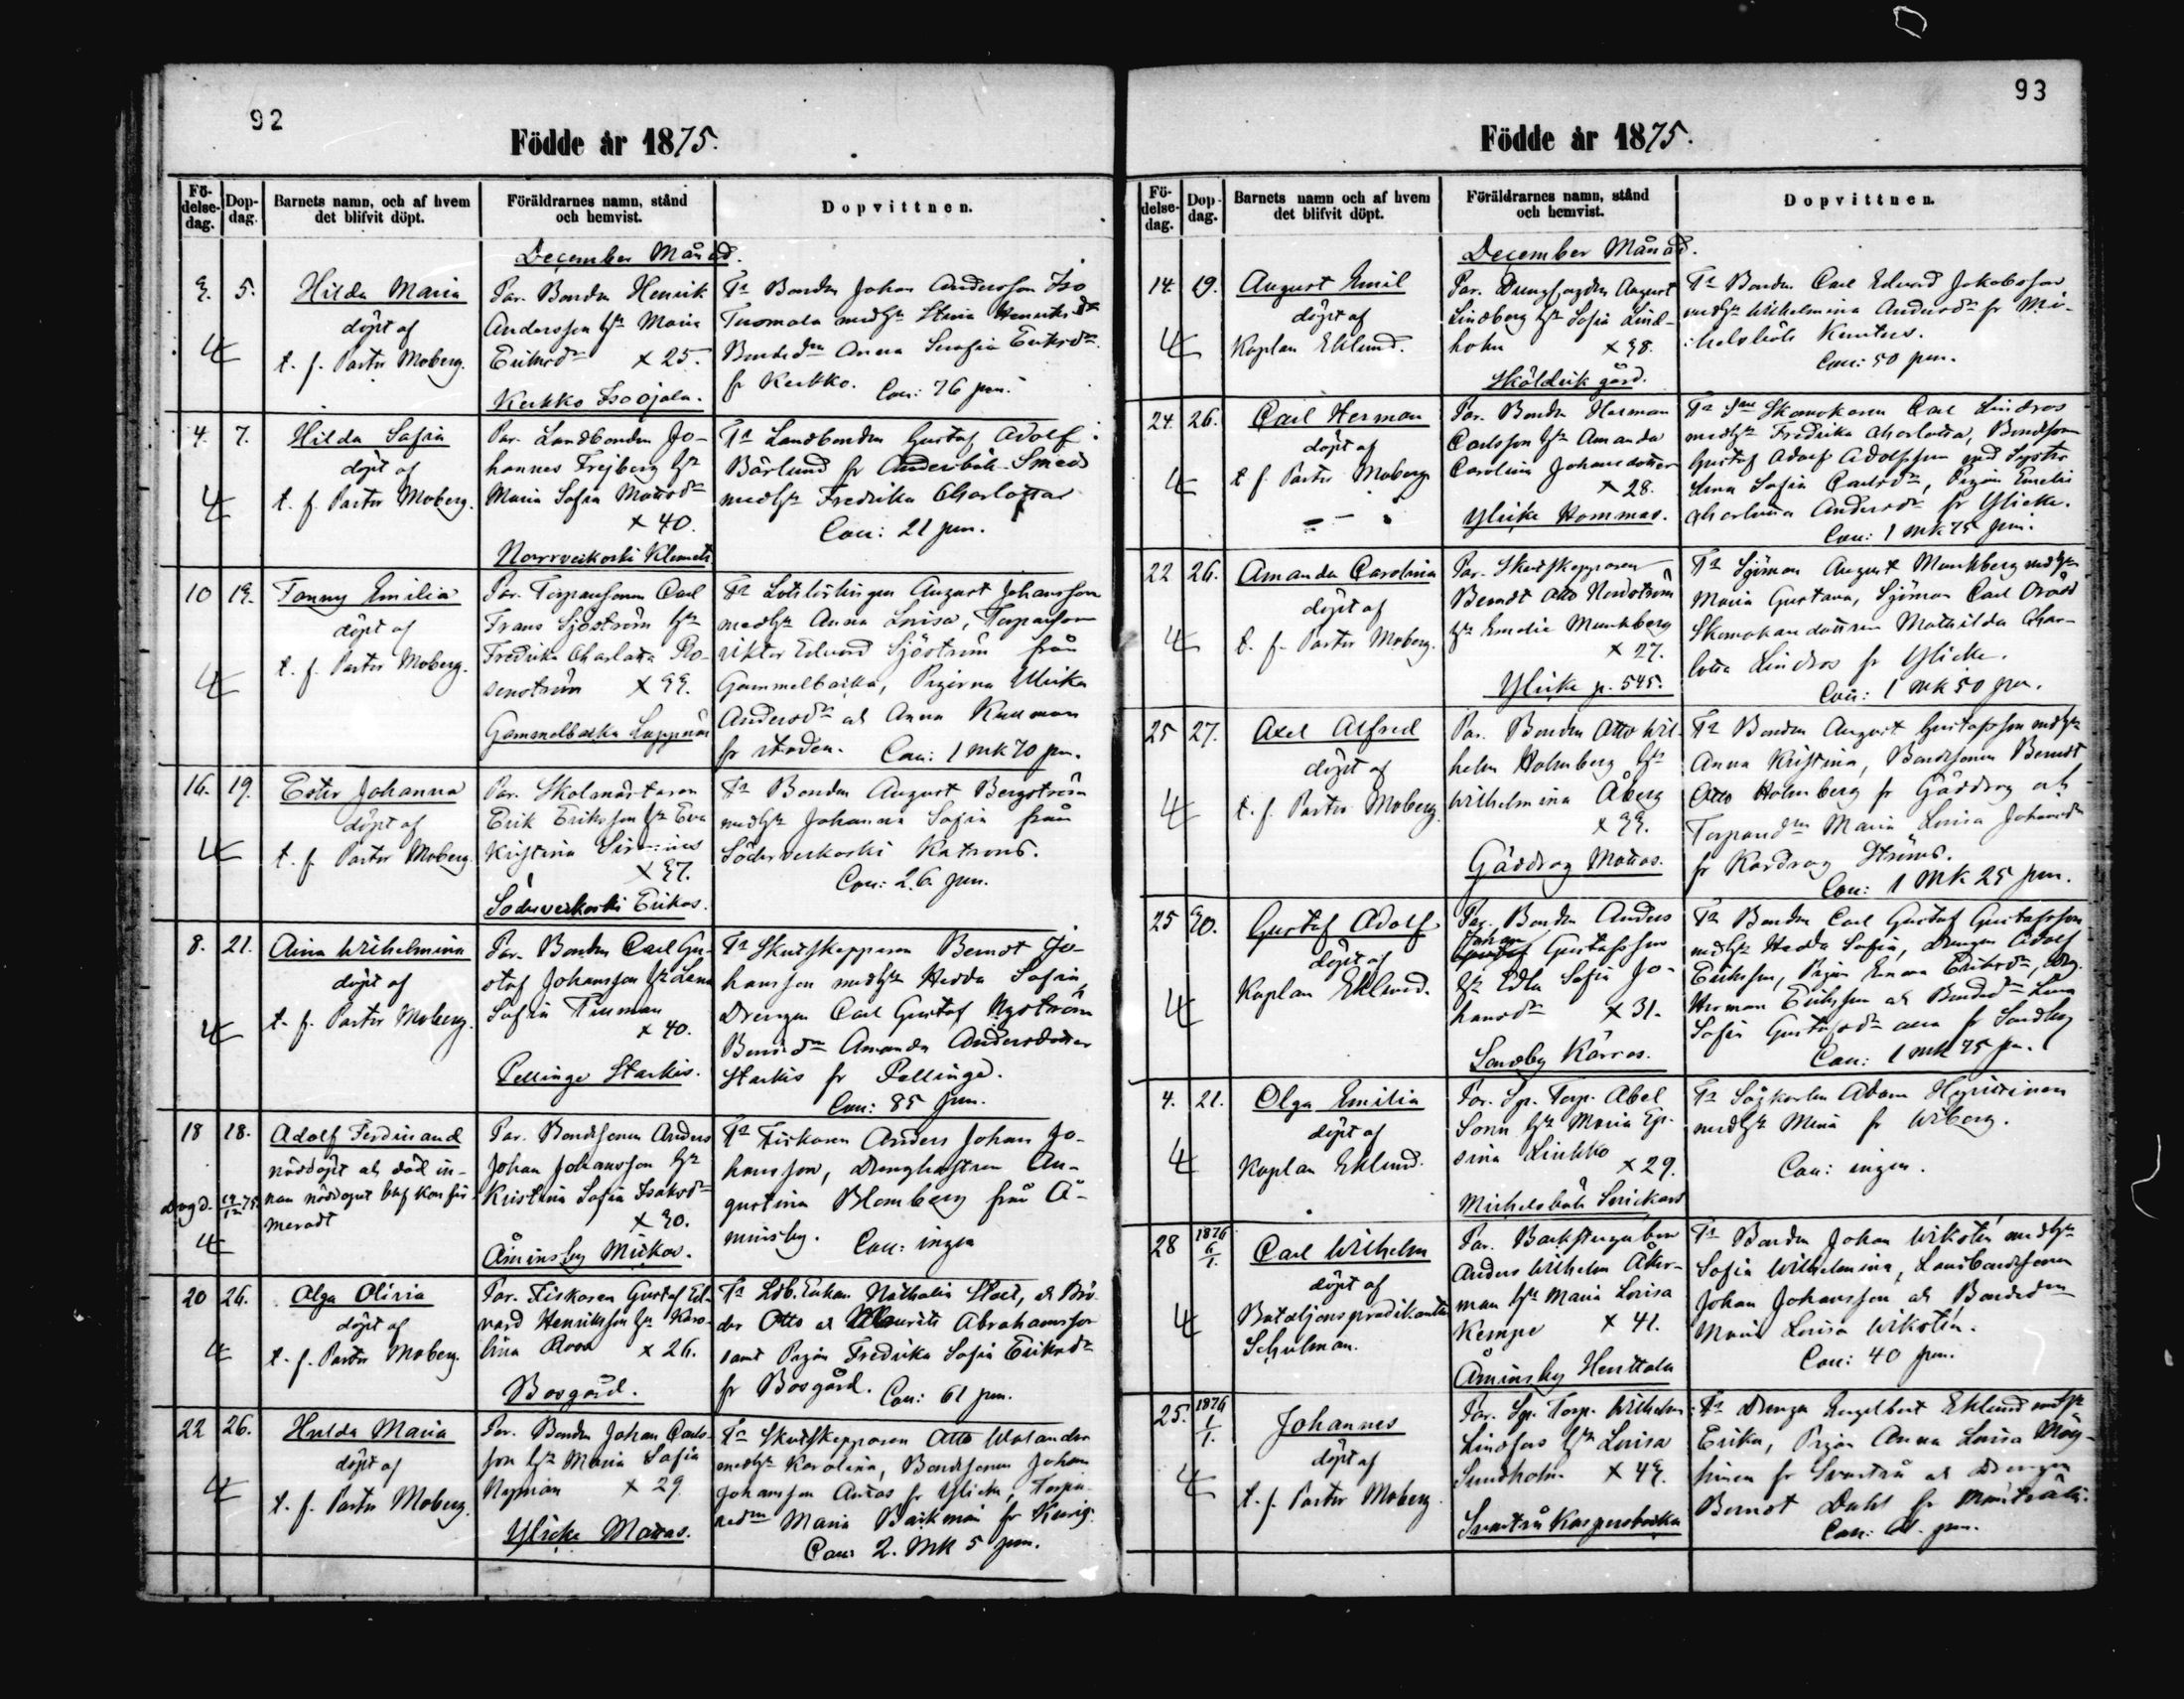 92
Födde år 1875.
Fö-
delse-
dag.
Dop-
dag.
Barnets namn, och af hvem
det blifvit döpt.
Föräldrarnes namn, stånd
och hemvist.
Dopvittnen.
December Månad.
3. 5.
Hilda Maria
döpt af
t. f. Pastor Moberg.
Par. Bonden Henrik
Andersson hst Maria
Eriksdr x 25.
Kerkko Isoojala.
Ts Bonden Johan Andersson Iso
Tuomala medhst Stina Henriksdr
Bondedn Anna Serafia Eriksdr
fr Kerkko. Cau: 76 pen.
4. 7.
Hilda Sofia
döpt af
t. f. Pastor Moberg.
Par. Landbonden Jo-
hannes Frejberg hst
Maria Sofia Mattsdr
x 40.
Norrveckoski Klemets
Ts Landbonden Gustaf Adolf
Bärlund fr Andersböle Smeds
medhst Fredrika Charlotta
Cau: 21 pen.
10 13.
Fanny Emilia
döpt af
t. f. Pastor Moberg.
Par. Torparsonen Carl
Frans Sjöström hst
Fredrika Charlotta Ro-
senström x 33.
Gammelbacka Luppnäs
Ts Lotslärlingen August Johansson
medhst Anna Lovisa, Torparson
Viktor Edvard Sjöström från
Gammelbacka, Pigorna Ulrika
Andersdr och Anna Kullman
fr staden. Cau: 1 mk 70 pn.
16. 19.
Ester Johanna
döpt af
t. f. Pastor Moberg.
Par. Skolmästaren
Erik Eriksson hst Eva
Kristina
x 37.
Söderveckoski Erikas.
Ts Bonden August Bergström
medhst Johanna Sofia från
Söderveckoski Katrens.
Cau: 26 pen.
8. 21.
Aina Wilhelmina
döpt af
t. f. Pastor Moberg.
Par. Bonden Carl Gu-
staf Johansson hst Lena
Sofia
x 40.
Pellinge Starkis.
Ts Skutskepparen Berndt Jo-
hansson medhst Hedda Sofia,
Drengen Carl Gustaf Nyström
Bondedn Amanda Andersdotter
Starkis fr Pellinge.
Cau: 85 pen.
18 18.
Adolf Ferdinand
nöddöpt och död in-
nan nöddopet blef konfir-
meradt
Par. Bondsonen Anders
Johan Johansson hst
Kristina Sofia Isaksdr
x 30.
Åminsby Mickos.
Ts Fiskaren Anders Johan Jo-
hansson, Drenghustrun Au-
gustina Blomberg från Å-
minsby. Cau: ingen
20 26.
Olga Olivia
döpt af
t. f. Pastor Moberg.
Par. Fiskaren Gustaf Ed-
vard Henriksson hst Karo-
lina Roos x 26.
Bosgård.
Ts Ldb. Enkan Nathalia och Brö-
der Otto och Mauritz Abrahamsson
samt Pigan Fredrika Sofia Eriksdr
fr Bosgård. Cau: 61 pen.
22 26.
Hulda Maria
döpt af
t. f. Pastor Moberg.
Par. Bonden Johan Carls-
son hst Maria Sofia
Nyman x 29.
Ylicke Mattas.
Ts Skutskepparen Otto Walander
medhst Karolina, Bondsonen Johan
Johansson Antas fr Ylicke, Torpa-
redn Maria Backman fr
Cau: 2. mk 5 pen.
93
Födde år 1875.
Fö-
delse-
dag.
Dop-
dag.
Barnets namn och af hvem
det blifvit döpt.
Föräldrarnes namn, stånd
och hemvist.
Dopvittnen.
December Månad.
14. 19.
August Emil
döpt af
Kaplan Eklund.
Par. August
Lindberg hst Sofia Lind-
holm x 38.
Sköldvik gård.
Ts Bonden Carl Edvard Jakobsson
medhst Wilhelmina Andersdr fr Mi-
chelsböle
Cau: 50 pen.
24. 26.
Carl Herman
döpt af
t. f. Pastor Moberg
Par. Bonden Herman
Carlsson hst Amanda
Carolina Johansdotter
x 28.
Ylicke Hommas.
Ts Skomakaren Carl Lindros
medhst Fredrika Charlotta, Bondson
Gustaf Adolf Adolfsson Syster
Lena Sofia Carlsdr, Pigan Emelie
Charlotta Andersdr fr Ylicke.
Cau: 1 mk 75 pen.
22 26.
Amanda Carolina
döpt af
t. f. Pastor Moberg.
Par. Skutskepparen
Berndt Otto Nordström
hst Emelie Munkberg
x 27.
Ylicke p. 545.
Ts Sjöman August Munkberg medhst
Maria Gustava, Sjöman Carl
Skomakaredottren Mathilda Char-
lotta Lindros fr Ylicke.
Cau: 1 mk 50 pen.
25 27.
Axel Alfred
döpt af
t. f. Pastor Moberg.
Par. Bonden Otto Wil-
helm Holmberg hst
Wilhelmina Åberg
x 33.
Gäddrag Mattas.
Ts Bonden August Gustafsson medhst
Anna Kristina, Bondsonen Berndt
Otto Holmberg fr Gäddrag och
Torparedn Maria Lovisa Johansdr
fr Kardrag Ströms.
Cau: 1 mk 25 pen.
25 30.
Gustaf Adolf
döpt af
Kaplan Eklund.
Par. Bonden Anders
Johan
Gustafsson
hst Edla Sofia Jo-
hansdr x 31.
Sondby Kärras.
Ts Bonden Carl Gustaf Gustafsson
medhst Hedda Sofia, Drengen Adolf
Eriksson, Pigan Emma Eriksdr, Drg.
Herman Eriksson och Bondedn Lena
Sofia Gustafsdr alla fr Sondby
Cau: 1 mk 75 pn.
4. 21.
Olga Emilia
döpt af
Kaplan Eklund.
Par. Sp. Torp. Abel
Sonn hst Maria Ep-
sina Linkko
x 29.
Michelsböle
Ts Sågkarlen Adam
medhst Mina fr Wiborg.
Cau: ingen.
28 1876 6/1.
Carl Wilhelm
döpt af
Bataljonspredikanten
Schulman.
Par. Backstugubon
Anders Wilhelm Åker-
man hst Maria Lovisa
Kempe x 41.
Åminsby Henttala
Ts Bonden Johan Wiksten medhst
Sofia Wilhelmina, Landbondsonen
Johan Johansson och Bondedn
Maria Lovisa Wiksten.
Cau: 40 pen.
25. 1876 1/1.
Johannes
döpt af
t. f. Pastor Moberg.
Par. Sp. Torp. Wilhelm
Lindfors hst Lovisa
Sundholm x 43.
Svartså Kaspersbacka
Ts Drengen Engelbert Eklund medhst
Erika, Pigan Anna Lovisa
fr Svartså och Drengen
Berndt Dahl fr